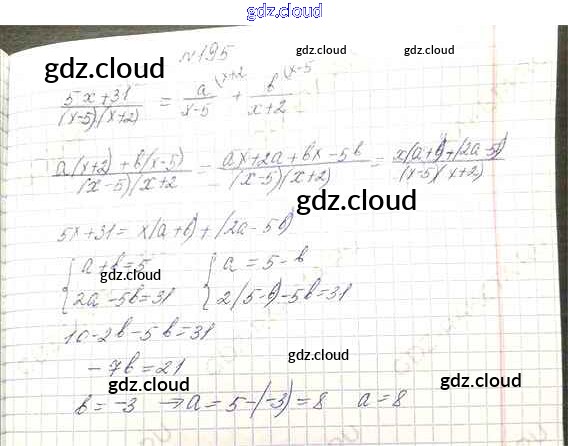 gdz.cloud
№195
gdz.cloud gdz.cloud gdz.cloud
(5x+31)/((x-5)(x+2)) = a/(x-5) (x+2 + b/(x+2) (x-5
(a(x+2)+b(x-5))/((x-5)(x+2) = (ax+2a+bx-5b)/((x-5)(x+2)) = (x(a+b)+(2a-5b))/((x-5)(x+2))
gdz.cloud
5x+31=x(a+b)+(2a-5b)
{a+b=5 {a=5-b
{2a-5b=31 {2(5-b)-5b=31
10-2b-5b=31
gdz.cloud
-7b=21
gdz.cloud gdz.cloud
b=-3 → a=5-(-3)=8 a=8
gdz.cloud